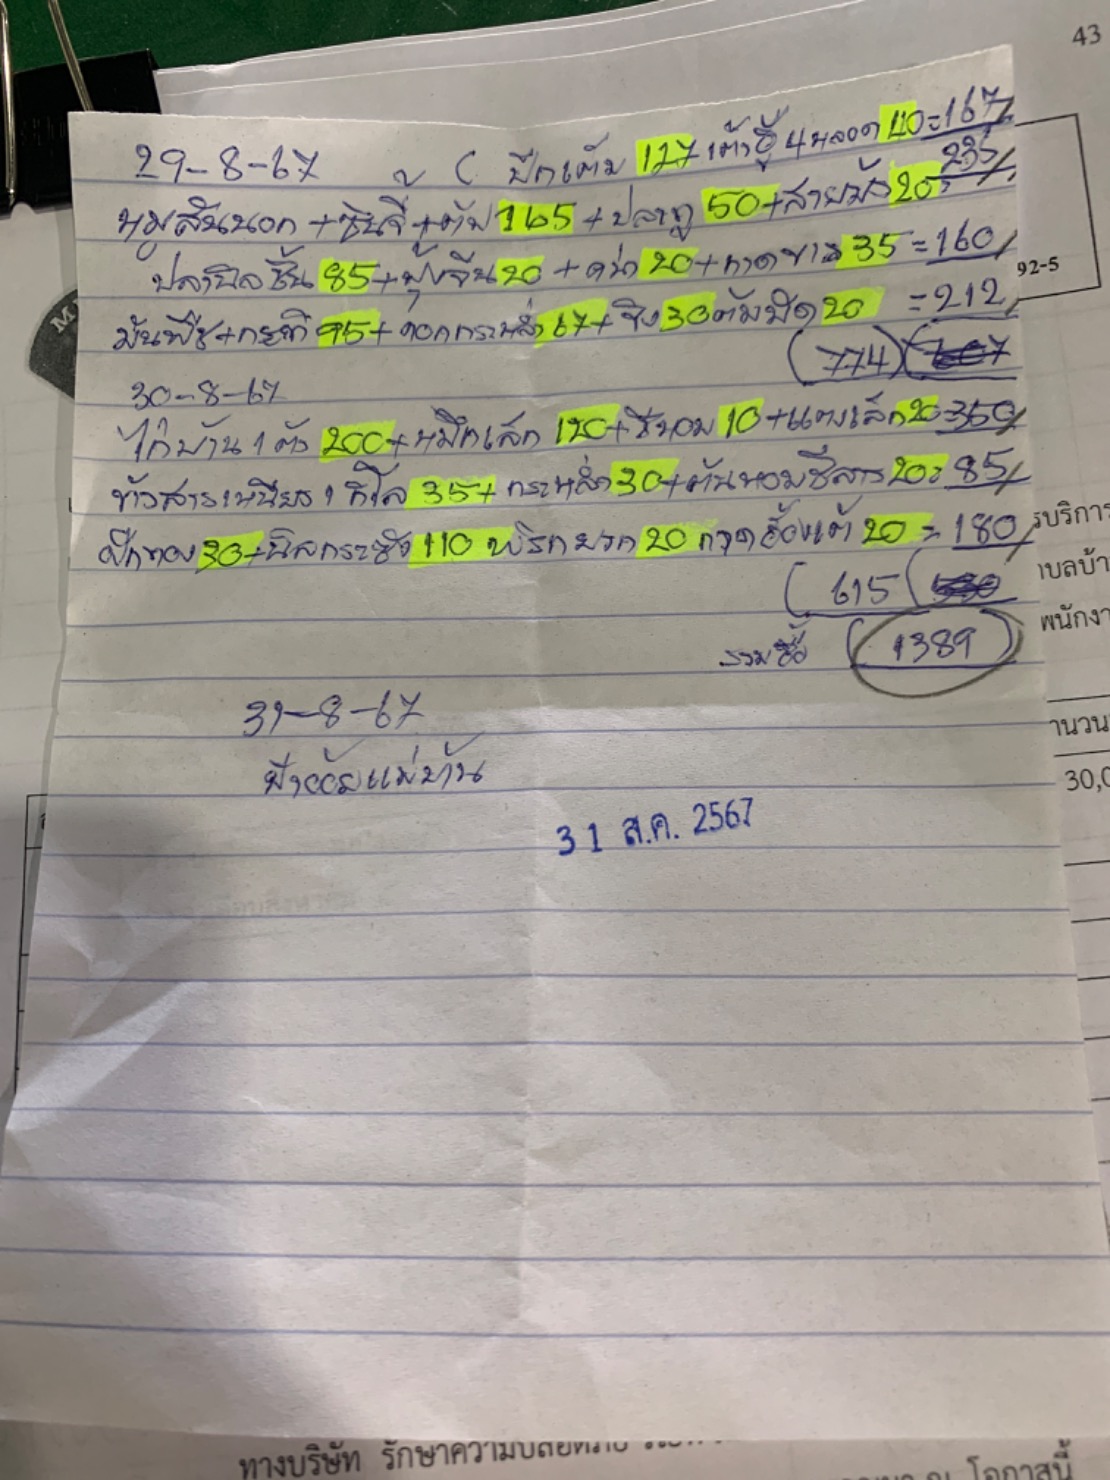 43
29-8-67 ( ปีกเต็ม 127 เต้าหู้ 4 หลอด 40 = 167
หมูสันนอก + ซินจี้ + ตับ 165 + ปลาทู 50 + สายบัว 20 = 235
ปลานิลชิ้น 85 + ผักบุ้งจีน 20 + คน้า 20 + กาดขาว 35 = 160
92-5
น้ำมันพืช + กะทิ 95 + ดอกกระหล่ำ 67 + ขิง 30 ต้มผัด 20 = 212
(774)
30-8-67
ไก่บ้าน 1 ตัว 200 + หมึกเล็ก 120 + ชีหอม 10 + แตงเล็ก 20 = 350
ข้าวสารเหนียว 1 กิโล 35 + กระหล่ำ 30 + ต้นหอมชีลาว 20 = 85
ฟักทอง 30 + นิลกระชัง 110 พริกยวก 20 กวดฮ้องเต้ 20 = 180
รบริการ
(615
บลบ้า
พนักงา
รวมซื้อ (1389)
31-8-67
านวน
ป้าออยแม่บ้าน
30,0
31 ส.ค. 2567
ทางบริษัท รักษาความปลอดภัย
ณ โอกาสนี้